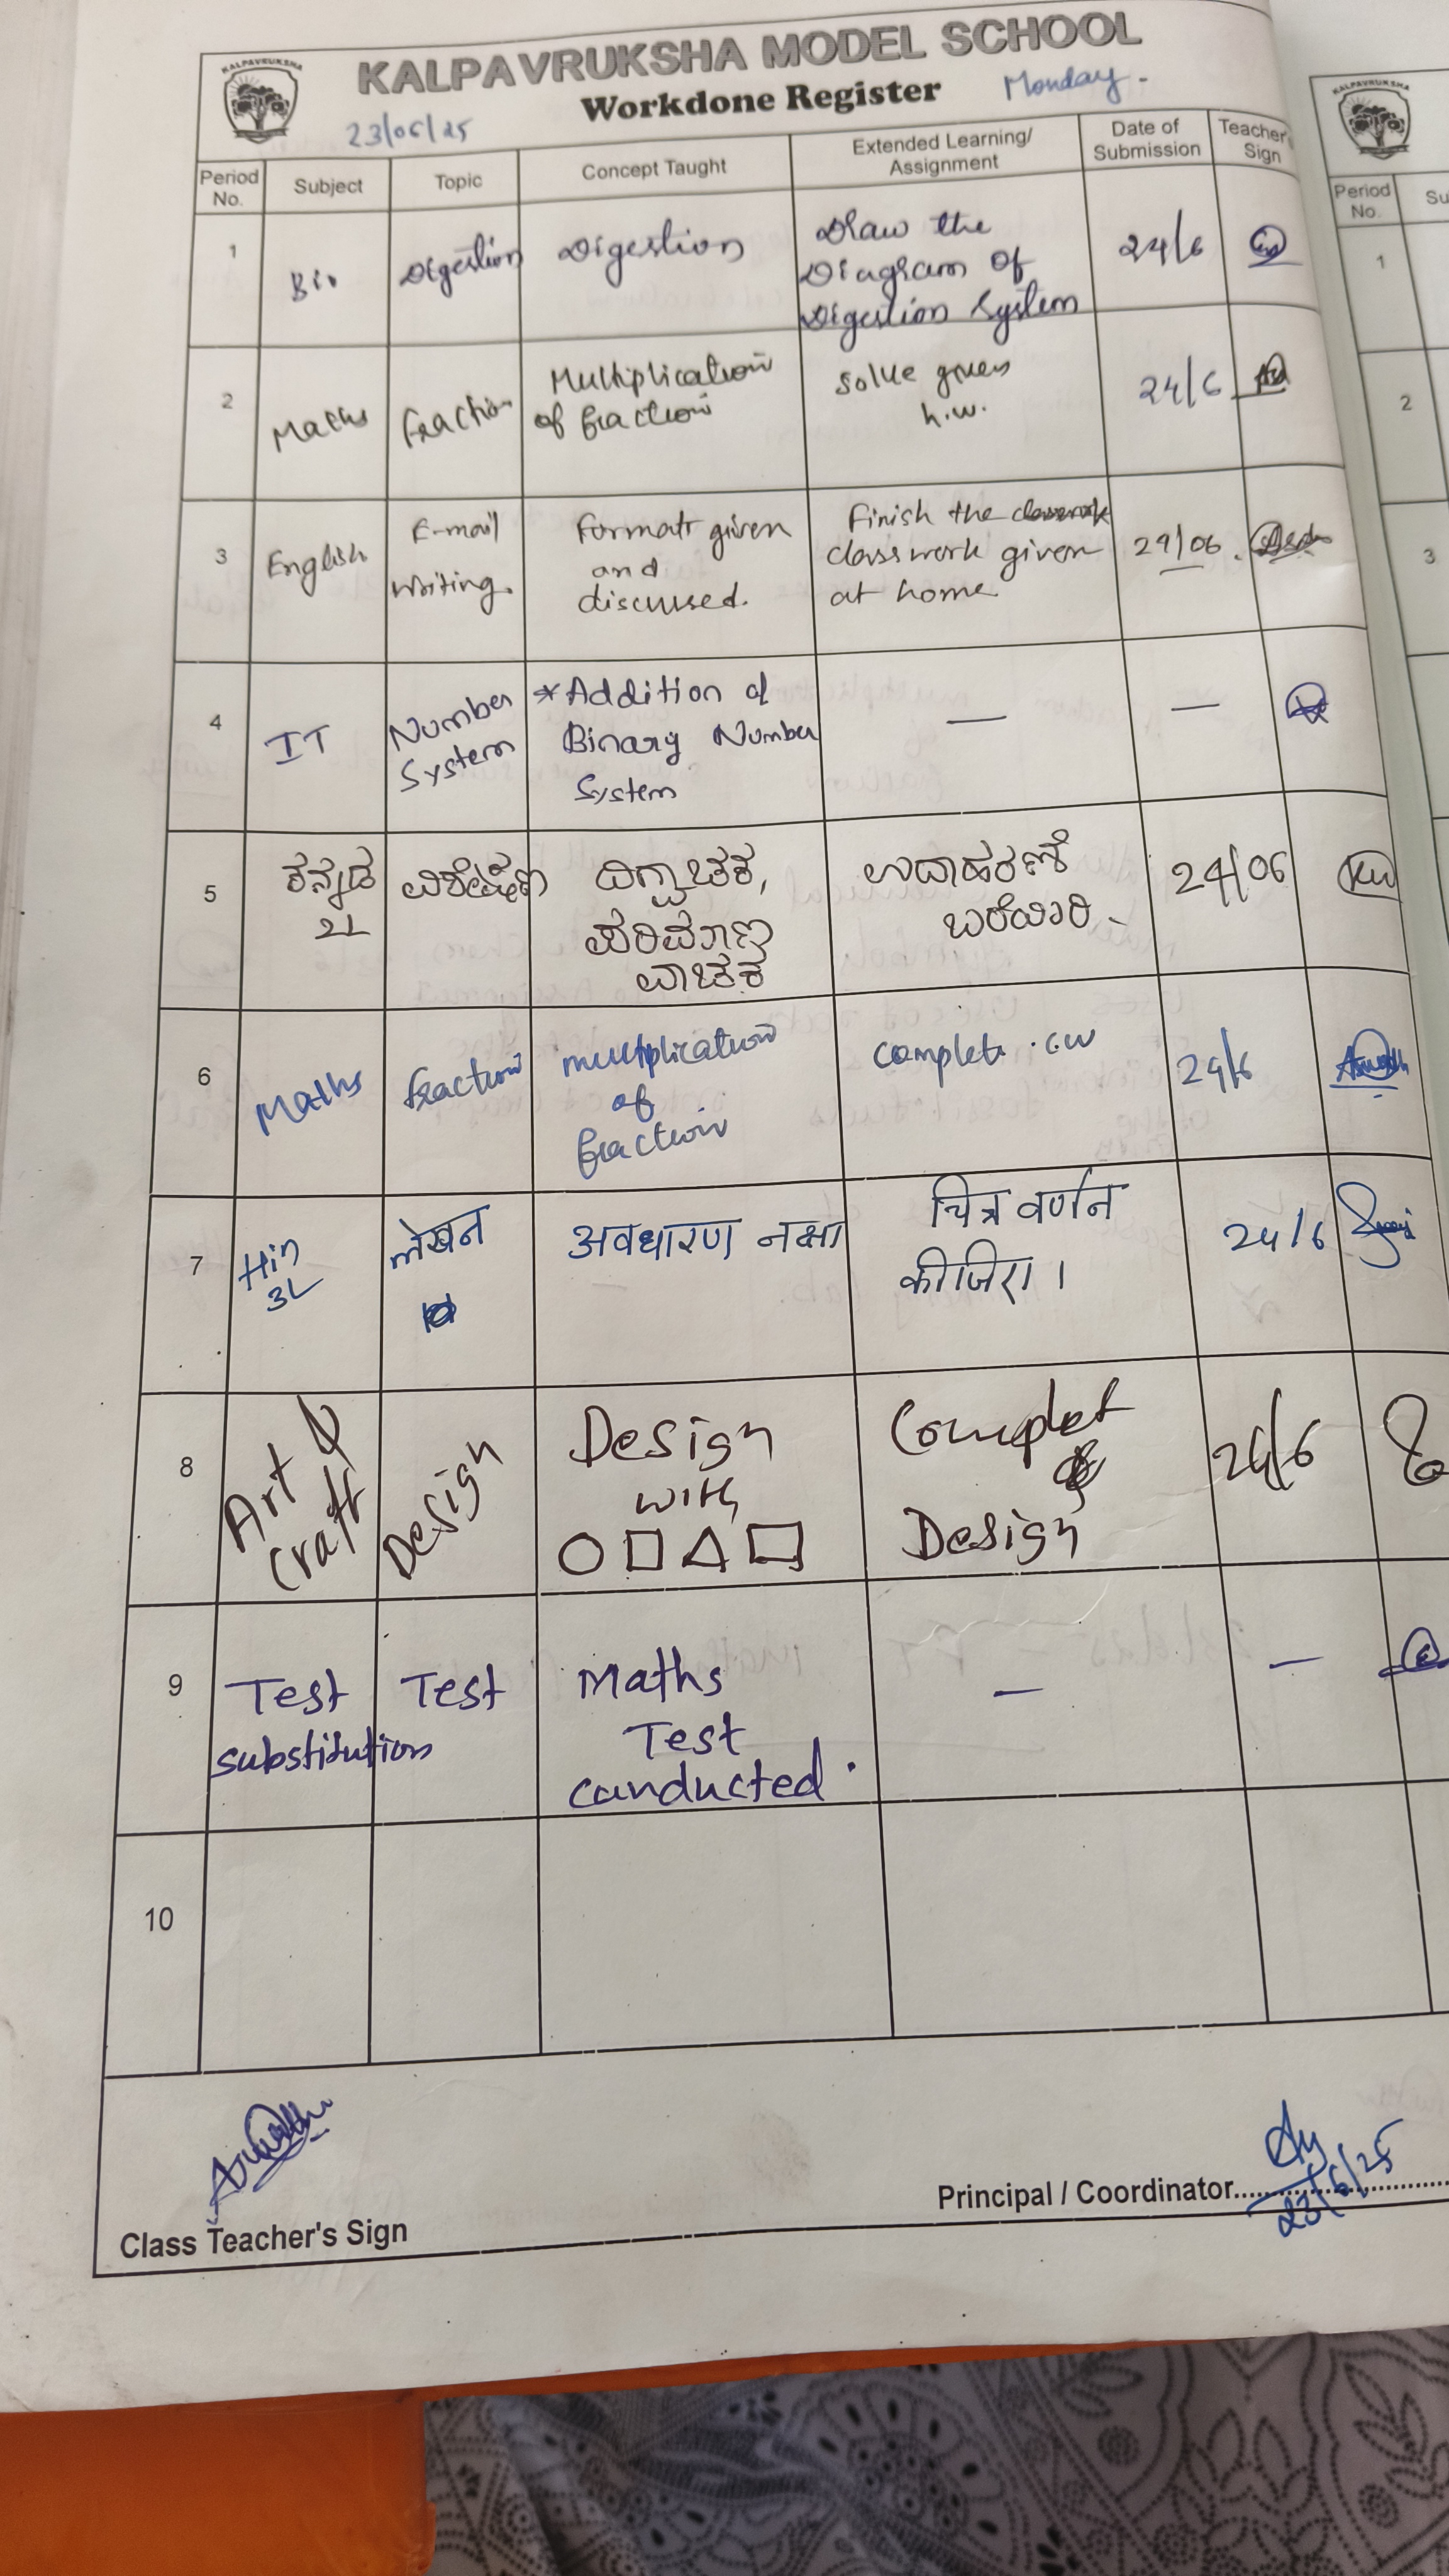 KALPAVRUKSHA MODEL SCHOOL
Workdone Register
Monday.
23/06/25
KALPAVRUKSHA
Period No. Subject Topic Concept Taught Extended Learning/ Assignment Date of Submission Teacher's Sign
1 Bio Digestion Digestion Draw the
Diagram of
Digestion System 24/6
2 Maths fraction Multiplication
of fraction solve given
h.w. 24/6
3 English E-mail
Writing. Formats given
and
discussed. Finish the
classwork given
at home 24/06.
4 IT Number
System *Addition of
Binary Number
System — —
5 ಕನ್ನಡ
2L ವಿಶೇಷಣ ದಿಗ್ವಾಚಕ,
ಪರಿಮಾಣ
ವಾಚಕ ಉದಾಹರಣೆ
ಬರೆಯಿರಿ. 24/06
6 Maths fraction multiplication
of
fraction complete .cw 24/6
7 Hin
3L लेखन अवधारण नक्षा चित्र वर्णन
कीजिए । 24/6
8 Art &
Craft Design Design
with Complet
Design 24/6
9 Test
substitution Test Maths
Test
conducted. — —
10
Class Teacher's Sign
Principal / Coordinator
23/6/25
KALPAVRUKSHA
Period No. Su
1
2
3